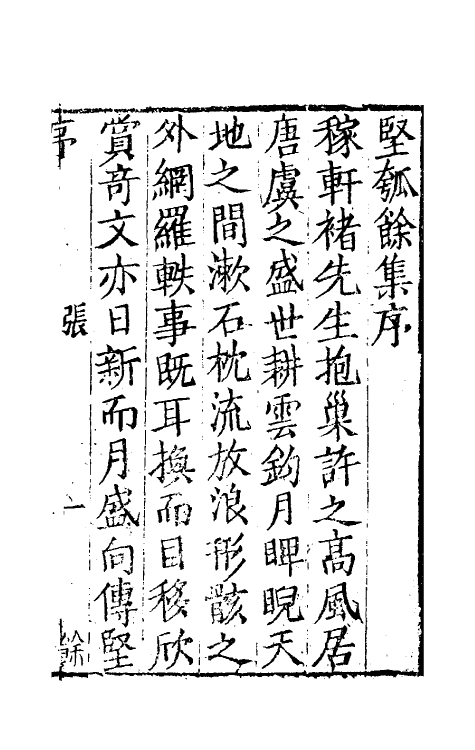 堅瓠餘集序
稼軒褚先生抱巢許之高風居
唐虞之盛世耕雲釣月睥睨天
地之間漱石枕流放浪形骸之
外網羅軼事既耳換而目移欣
賞奇文亦日新而月盛向傳堅
序 張 一 餘